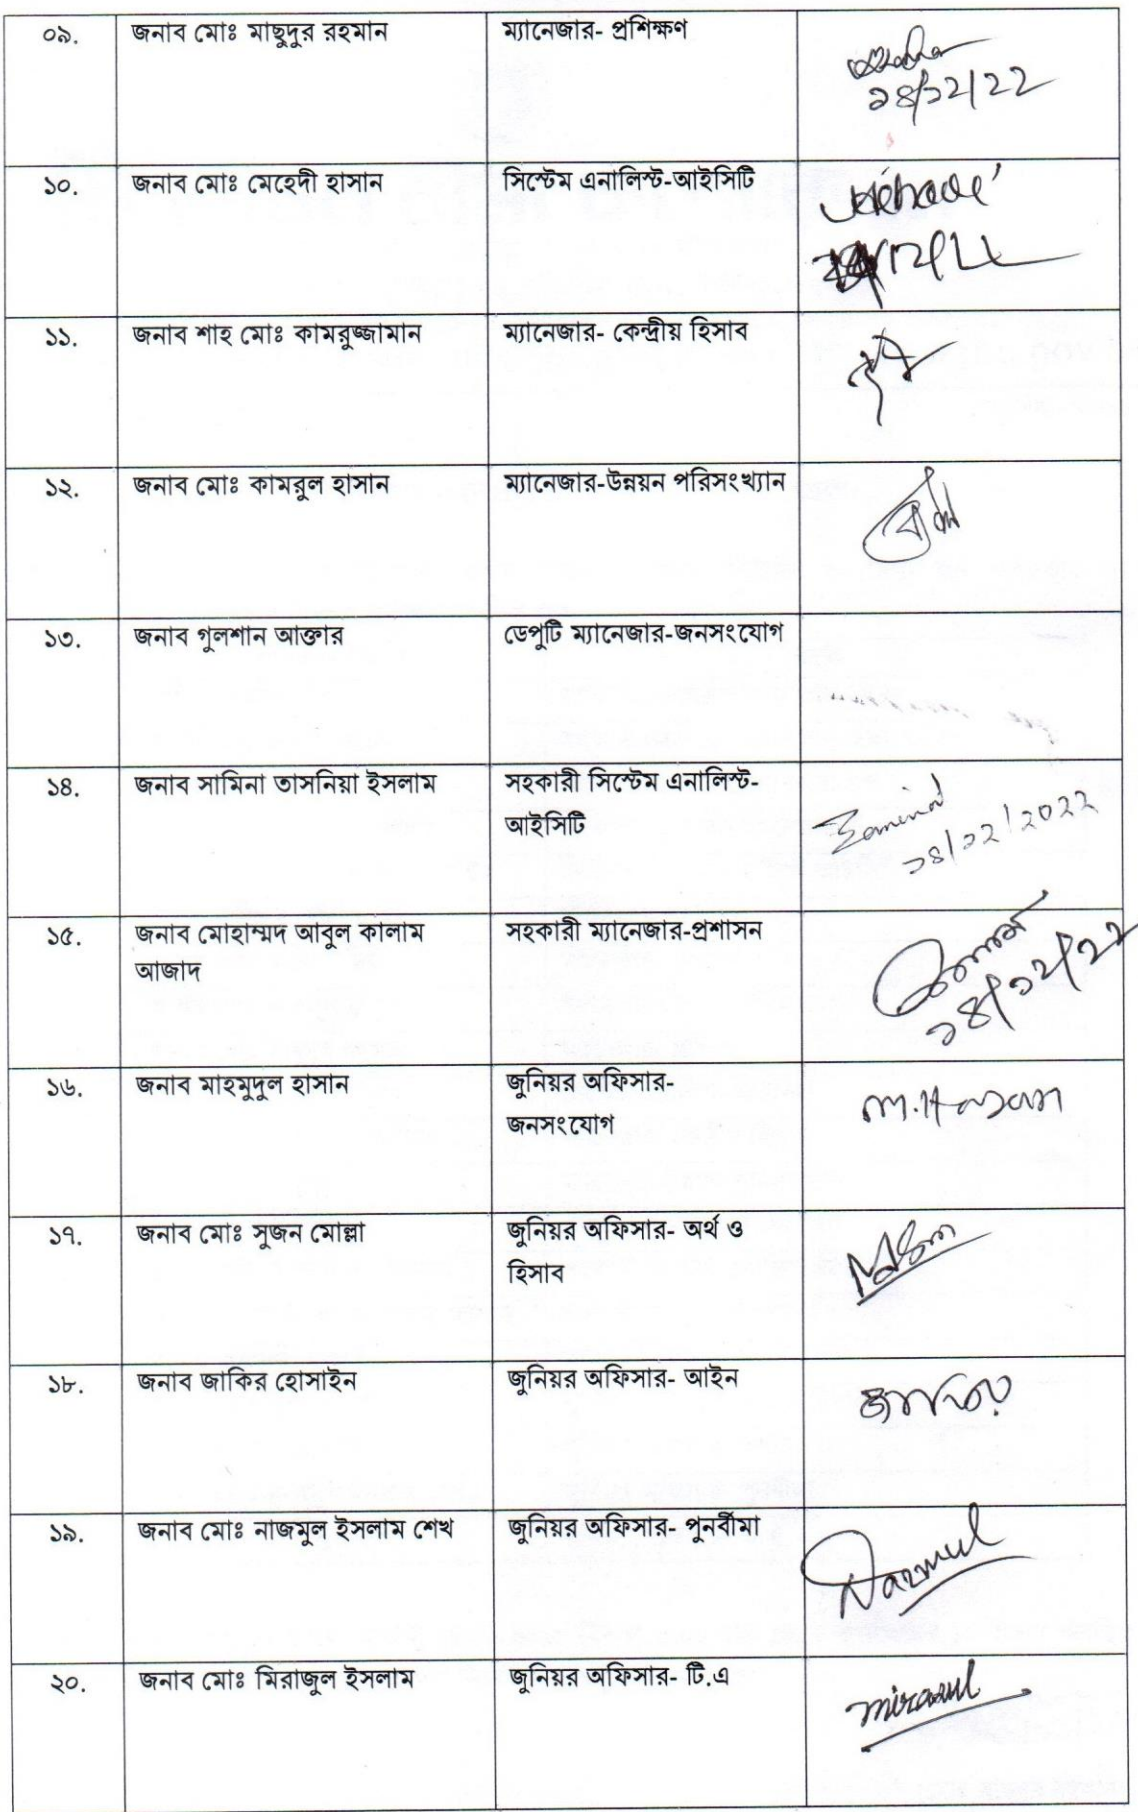 ০৯. জনাব মোঃ মাছুদুর রহমান ম্যানেজার- প্রশিক্ষণ
১৪/১২/২২
১০. জনাব মোঃ মেহেদী হাসান সিস্টেম এনালিস্ট-আইসিটি
১১. জনাব শাহ মোঃ কামরুজ্জামান ম্যানেজার- কেন্দ্রীয় হিসাব
১২. জনাব মোঃ কামরুল হাসান ম্যানেজার-উন্নয়ন পরিসংখ্যান
১৩. জনাব গুলশান আক্তার ডেপুটি ম্যানেজার-জনসংযোগ
১৪. জনাব সামিনা তাসনিয়া ইসলাম সহকারী সিস্টেম এনালিস্ট-
আইসিটি Samina
১৪/১২/২০২২
১৫. জনাব মোহাম্মদ আবুল কালাম সহকারী ম্যানেজার-প্রশাসন
আজাদ
১৪/১২/২২
১৬. জনাব মাহমুদুল হাসান জুনিয়র অফিসার- M.Hasan
জনসংযোগ
১৭. জনাব মোঃ সুজন মোল্লা জুনিয়র অফিসার- অর্থ ও
হিসাব
১৮. জনাব জাকির হোসাইন জুনিয়র অফিসার- আইন
১৯. জনাব মোঃ নাজমুল ইসলাম শেখ জুনিয়র অফিসার- পুনর্বীমা
Nazmul
২০. জনাব মোঃ মিরাজুল ইসলাম জুনিয়র অফিসার- টি.এ
mirazul